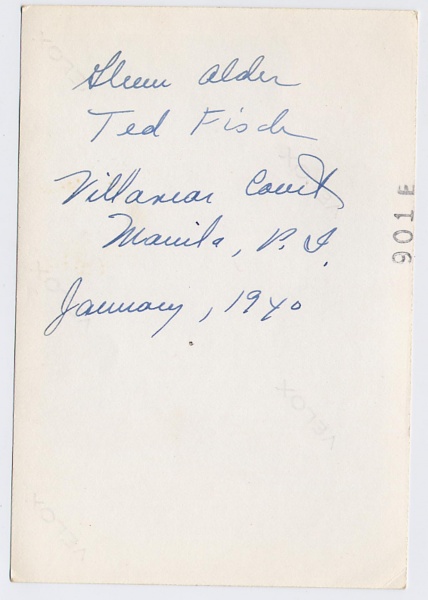 Glenn Alder
Ted Fisch
Villamar Court
Manila, P. I.
January, 1940
901E
VELOX
VELOX